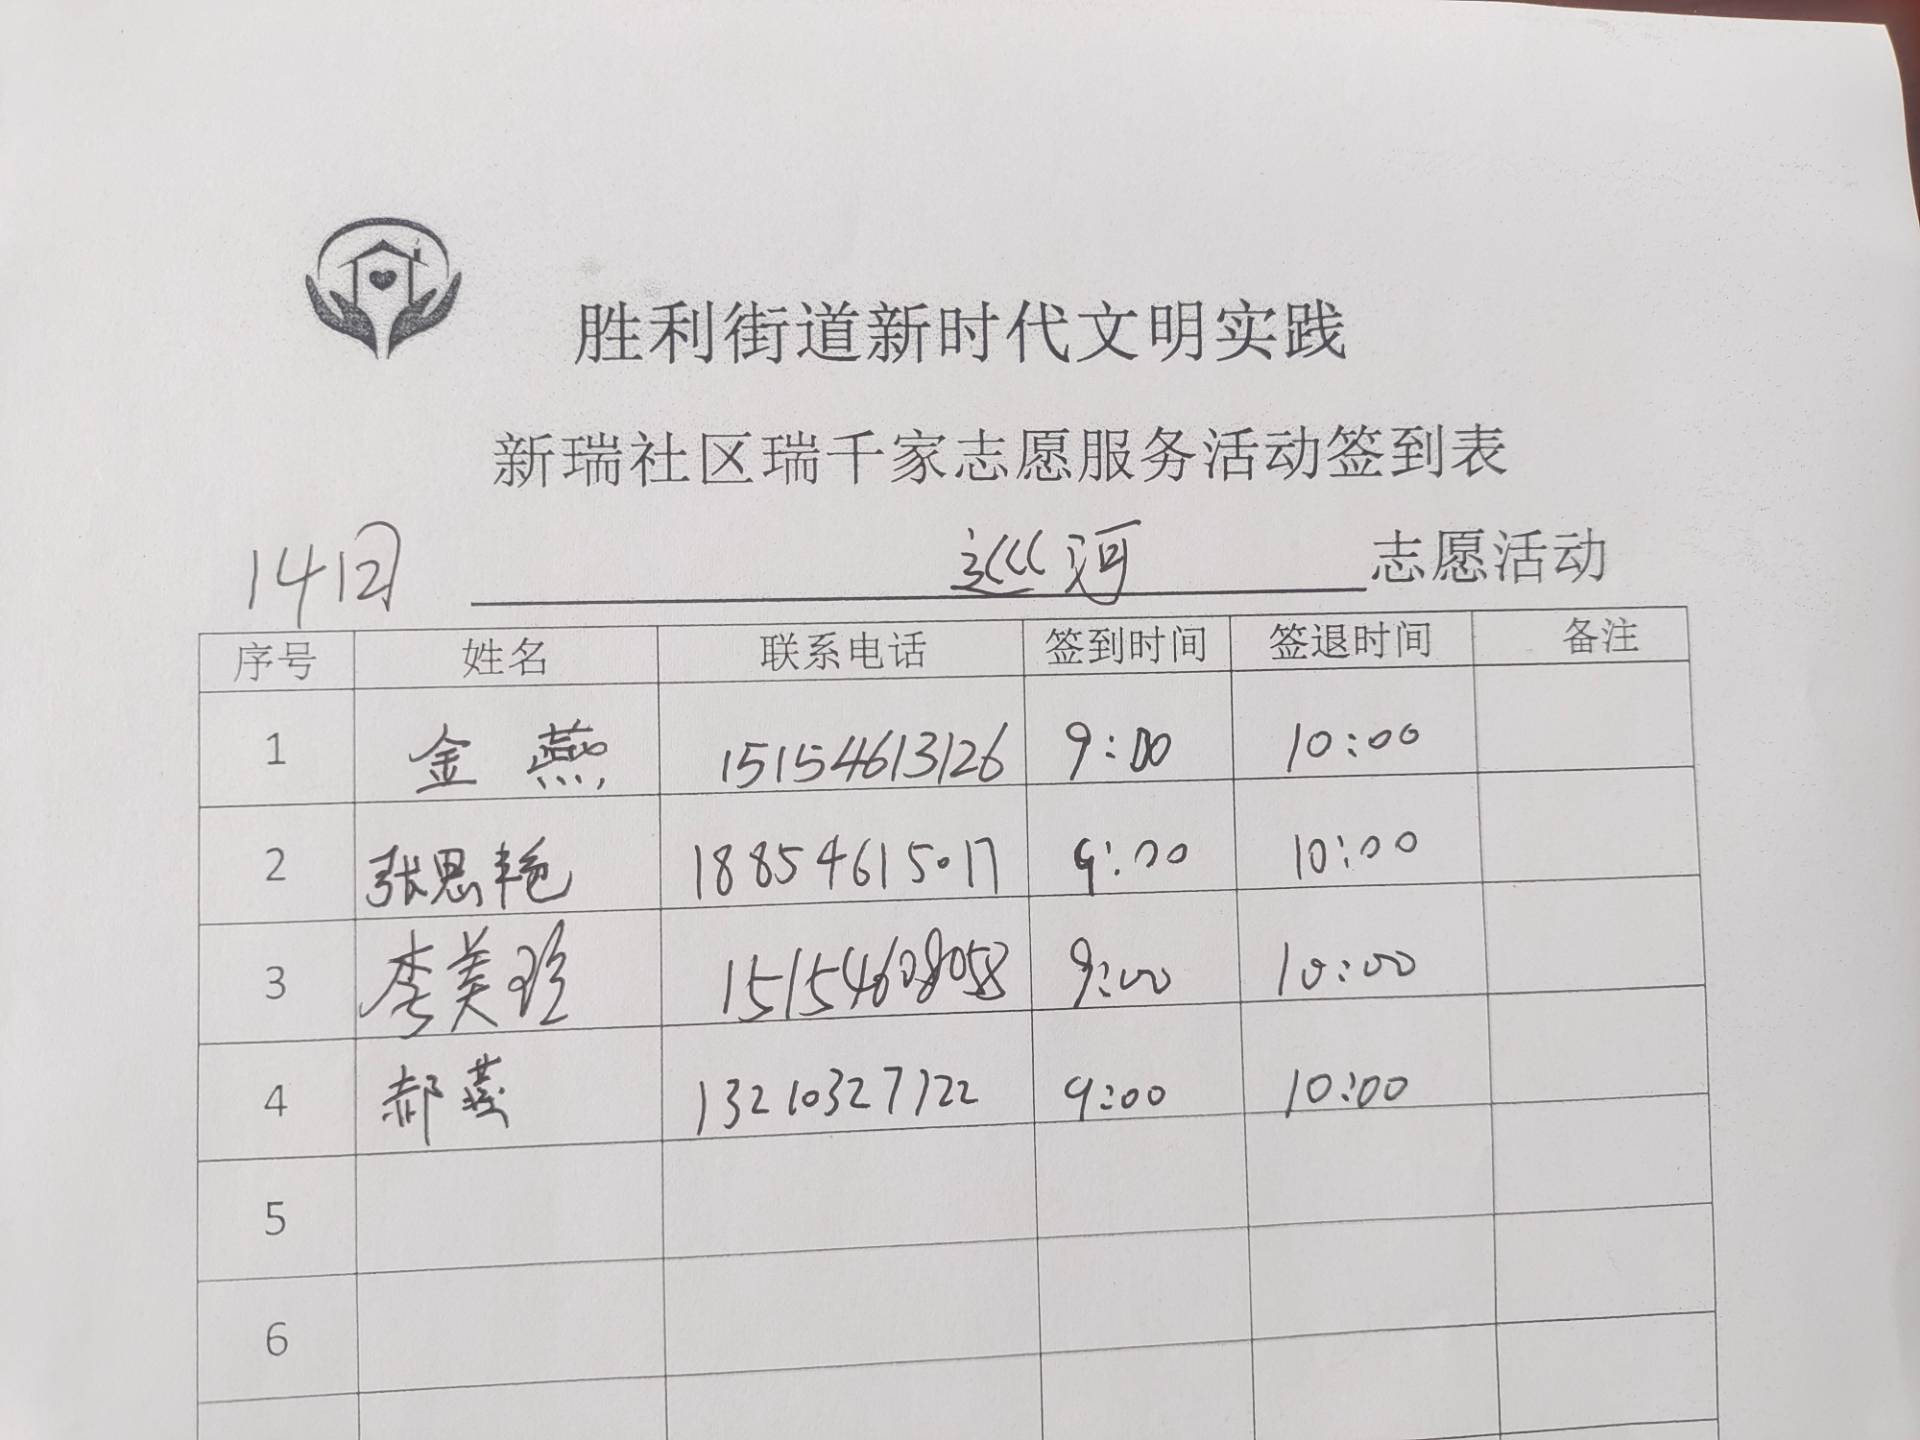 胜利街道新时代文明实践
新瑞社区瑞千家志愿服务活动签到表
14日 巡河 志愿活动
序号 姓名 联系电话 签到时间 签退时间 备注
1 金燕 15154613126 9:00 10:00
2 张思艳 18854615017 9:00 10:00
3 李美玲 15154608058 9:00 10:00
4 郝燕 13210327122 9:00 10:00
5
6